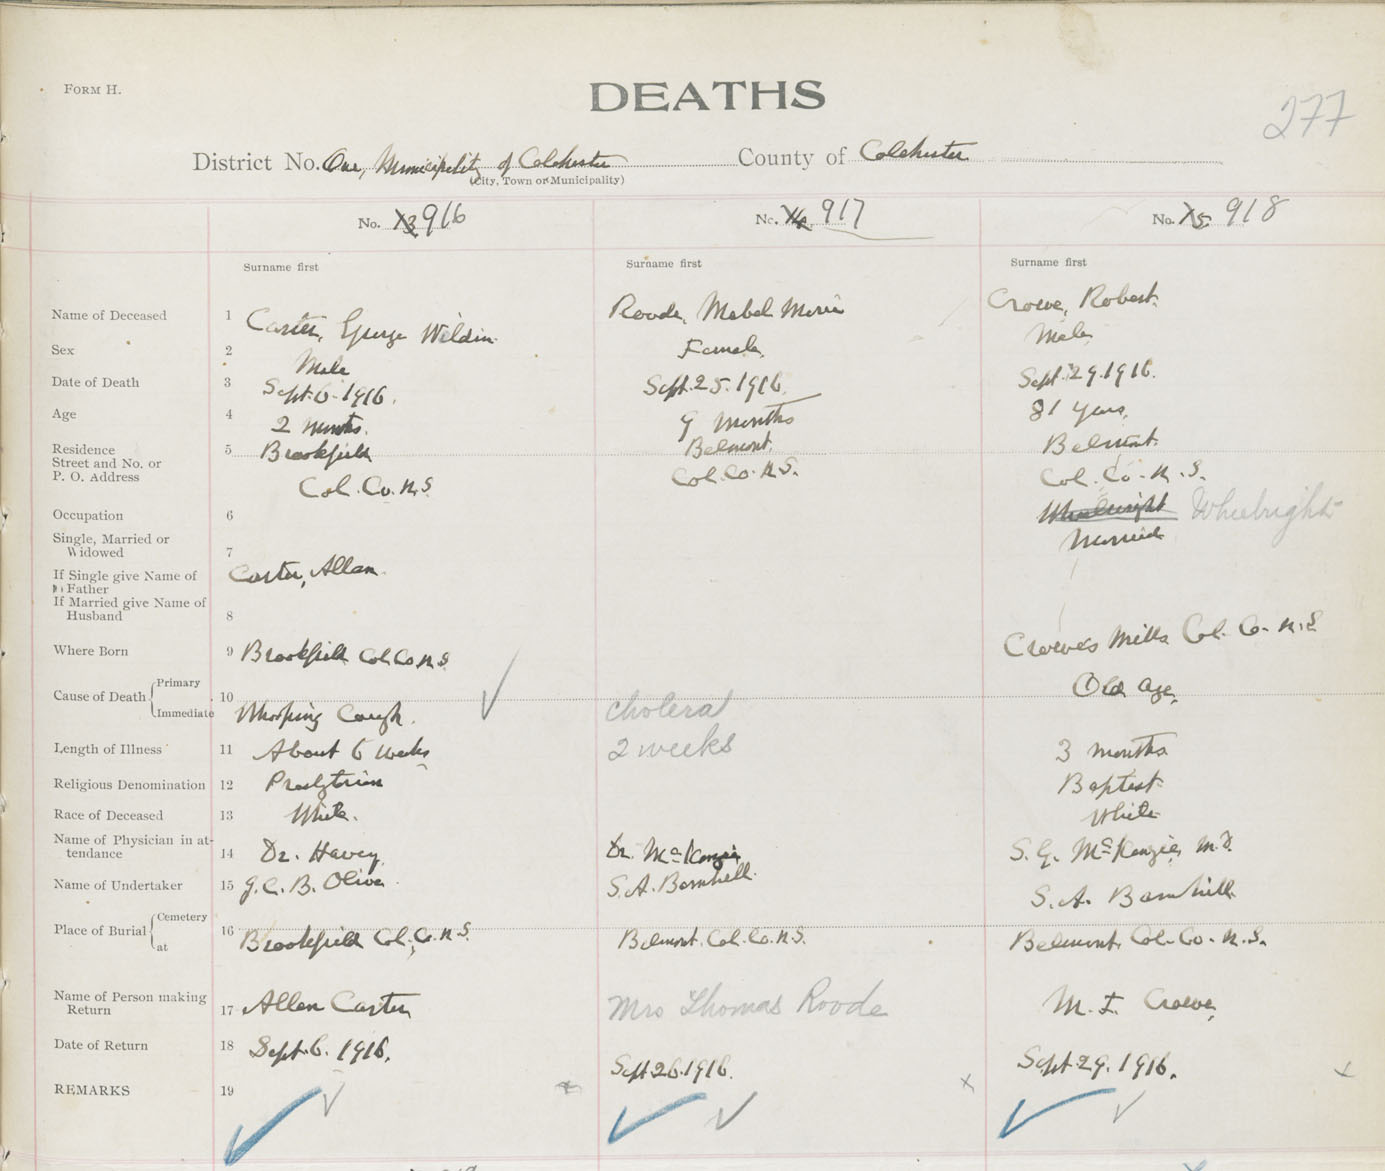 FORM H.
DEATHS
277
District No. One, Municipality of Colchester County of Colchester
(City, Town or Municipality)
No. 13 916
No. 14 917
No. 15 918
Surname first
Surname first
Surname first
Name of Deceased 1 Carter, George Weldin Roode, Mabel Marie Crowe, Robert
Sex 2 Male Female Male
Date of Death 3 Sept. 6 - 1916. Sept. 25. 1916. Sept. 29. 1916.
Age 4 2 months. 9 months 81 years
Residence 5 Brookfield Belmont. Belmont.
Street and No. or
P. O. Address Col. Co. N.S. Col. Co. N.S. Col. Co. N.S.
Occupation 6 Wheelwright Wheelwright
Single, Married or
Widowed 7 Married
If Single give Name of
Father Carter, Allan
If Married give Name of
Husband 8
Where Born 9 Brookfield Col. Co. N.S. Crowe's Mills Col. Co. N.S
Cause of Death Primary 10 Old age
Immediate Whooping Cough. cholera
Length of Illness 11 About 6 weeks 2 weeks 3 months
Religious Denomination 12 Presbyterian Baptist
Race of Deceased 13 White. White
Name of Physician in at-
tendance 14 Dr. Havey Dr. McKenzie S. G. McKenzie M.D.
Name of Undertaker 15 J. C. B. Olive S. A. Barnhill S. A. Barnhill
Place of Burial Cemetery 16
at Brookfield Col. Co. N.S. Belmont. Col. Co. N.S. Belmont, Col. Co. N.S.
Name of Person making
Return 17 Allen Carter Mrs Thomas Roode M. I. Crowe
Date of Return 18 Sept. 6. 1916. Sept 26. 1916. Sept. 29. 1916.
REMARKS 19